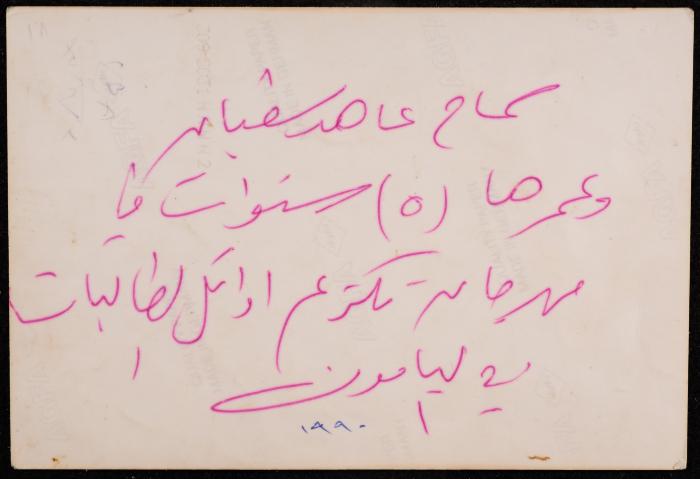 سماح عاهد سفيان
وعمرها (٥) سنوات في
مهرجان تكريم اوائل الطالبات
في اليامون
١٩٩٠